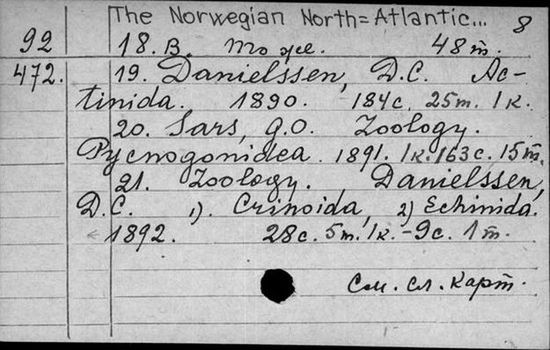 The Norwegian North=Atlantic... 8
92 18. B. То же. 48 т.
472. 19. Danielssen, D.C. Ac-
tinida. 1890. 184 с. 25 т. 1 к.
20. Sars, G.O. Zoology.
Pycnogonidea. 1891. 1 к. 163 с. 15 т.
21. Zoology. Danielssen,
D.C. 1). Crinoida, 2) Echinida.
1892. 28 с. 5 т. 1 к. - 9 с. 1 т.
См. сл. карт.